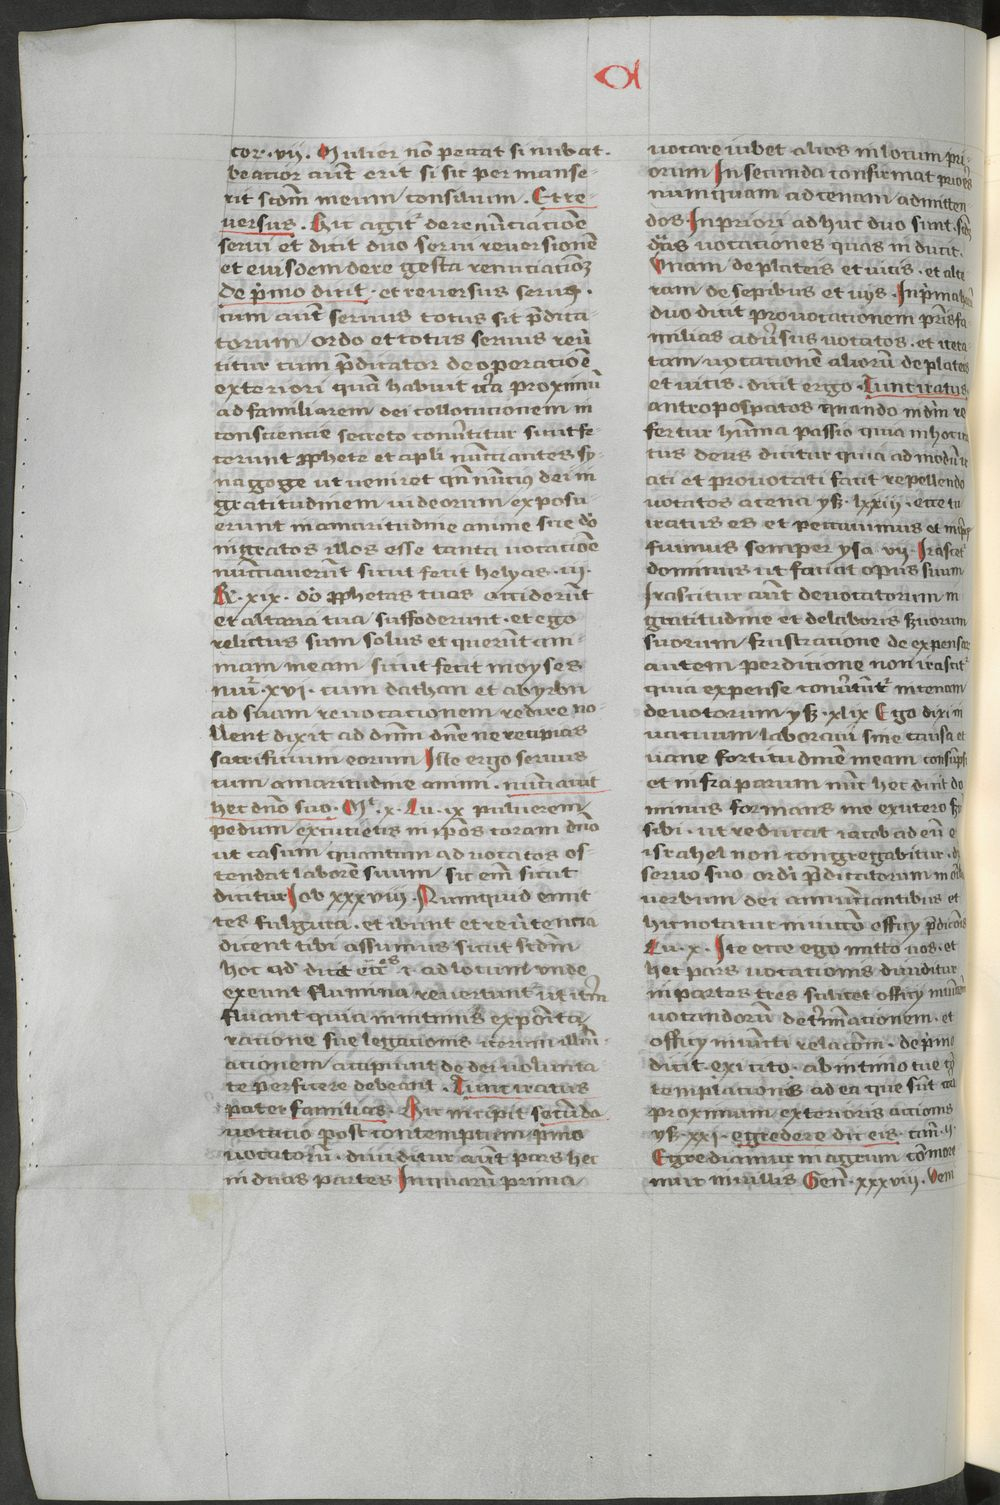 cor · vii · Mulier nō peccat si nubat ·
beatior aut̄ erit si sic permanse-
rit scdm̄ meum consilium · Et re-
versus · Hic agit᷑ de renūciatiōe
servi et dicit duo servi reversionē
et eiusdem de re gesta renūciationē
de p̄mo dicit · et reversus servus ·
cum aut̄ servus totus sit p̄dica-
torum ordo et totus servus rev̄
titur cum p̄dicator de operatiōe
exteriori quā habuit c̄ra proximū
ad familiarem dei collocucionem in
consciencie secreto conv̄titur sicut fe-
cerunt ꝓphete et apl̄i nūcciantes sy-
nagoge ut veniret qn̄ nūciꝰ dei in
gratitudinem iudeorum exposu-
erunt in amaritudine anime sue dō
ingratos illos esse tanta vocatiōe
nūcciaverūt sicut fecit helyas · iii ·
R̄ · xix · dō ꝓphetas tuas occiderūt
et altaria tua suffoderunt · et ego
relictus sum solus et querūt ani-
mam meam sicut fecit moyses
nūr̄ · xvi · cum dathan et abyron
ad suam revocationem redire no-
llent dixit ad dn̄m dn̄e ne recipias
sacrificium eorum Iste ergo servus
cum amaritudine animi · nūciavit
hec dn̄o suo · Mt̄ · x · Lu · ix pulverem
pedum excucietis in ip̄os coram dn̄o
ut casum quantum ad vocatos os-
tendat laborē suum sic em̄ sicut
dicitur Iob xxxviii · Numquid emit
tes fulgura · et ibunt et rev̄tencia
dicent tibi assumus sicut scdm̄
hoc qd̄ dicit ecc̄s i · ad locum unde
exeunt flumina revertunt᷑ ut it̄m
fluant quia in intimis expōita
ratione sue legationis iterum illūi
ationem accipiunt de dei volunta
te perficere debeāt · Tunc iratus
pater familias · Hic incipit secūda
vocatio post contemptum p̄mo
vocatorū · dividitur aut̄ pars hec
in duas partes In quarū prima
vocare iubet alios in locum pri-
orum In secunda confirmat priōes
numquam ad cenam admitten
dos · In priori adhuc duo sunt · scdm̄
duas vocationes quas inducit ·
Vnam de plateis et vicis · et alte
ram de sepibus et viis · In p̄ma
duo dicit provocationem p̄ris fa-
milias adv̄sus vocatos · et itera-
tam vocationē aliorū de plateis
et vicis · dicit ergo · Tunc iratus ·
antropospatos quando in dm̄ re
fertur hūma passio quia in hoc ira
tus deus dicitur quia ad modū ir
ati et provocati facit repellendo
vocatos a cena ys̄ · lxxiii · ecce tu
iratus es et peccavimus et in ip̄
fuimus semper ysa vii · Irascet᷑
dominus ut faciat opus suum
Irascitur aut̄ de vocatorum in
gratitudine et de laboris s̄vorum
suorum frustratione de expensar
autem perditione non irascit᷑
quia expense conv̄tūt᷑ in cenam
devotorum ys̄ · xlix Ego dixi in
vacuum laboravi sine causa et
vane fortitudinē meam consūpsi
et infra parum nūc hec dicit do
minus formans me ex utero s̄v
sibi · ut reducat iacob ad eū e
israhel non congregabitur ·
servo suo ordī p̄dicatorum in oīb
verbum dei annūciantibus et
hic notatur iniūcto officy p̄dicōis
Lu · x · Ite ecce ego mitto vos · et
hec pars vocationis dividitur
in partes tres scilicet officy
vocandorū det̄minationem · et
officy iniūcti relacōm · de p̄mo
dicit · exi cito · ab intimo tue cō
templationis ad ea que sūt
proximum exterioris actionis
ys̄ · xxi · egredere dic eis · can̄ · ii ·
Egrediamur in agrum cōmore
mur in villis Gen̄ · xxxviii · Veni